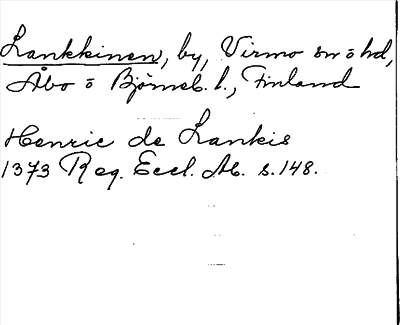 Lankkinen, by, Virmo sn o hd,
Åbo o Björneb. l., Finland
Henric de Lankis
1373 Reg. Eccl. Ab. s. 148.